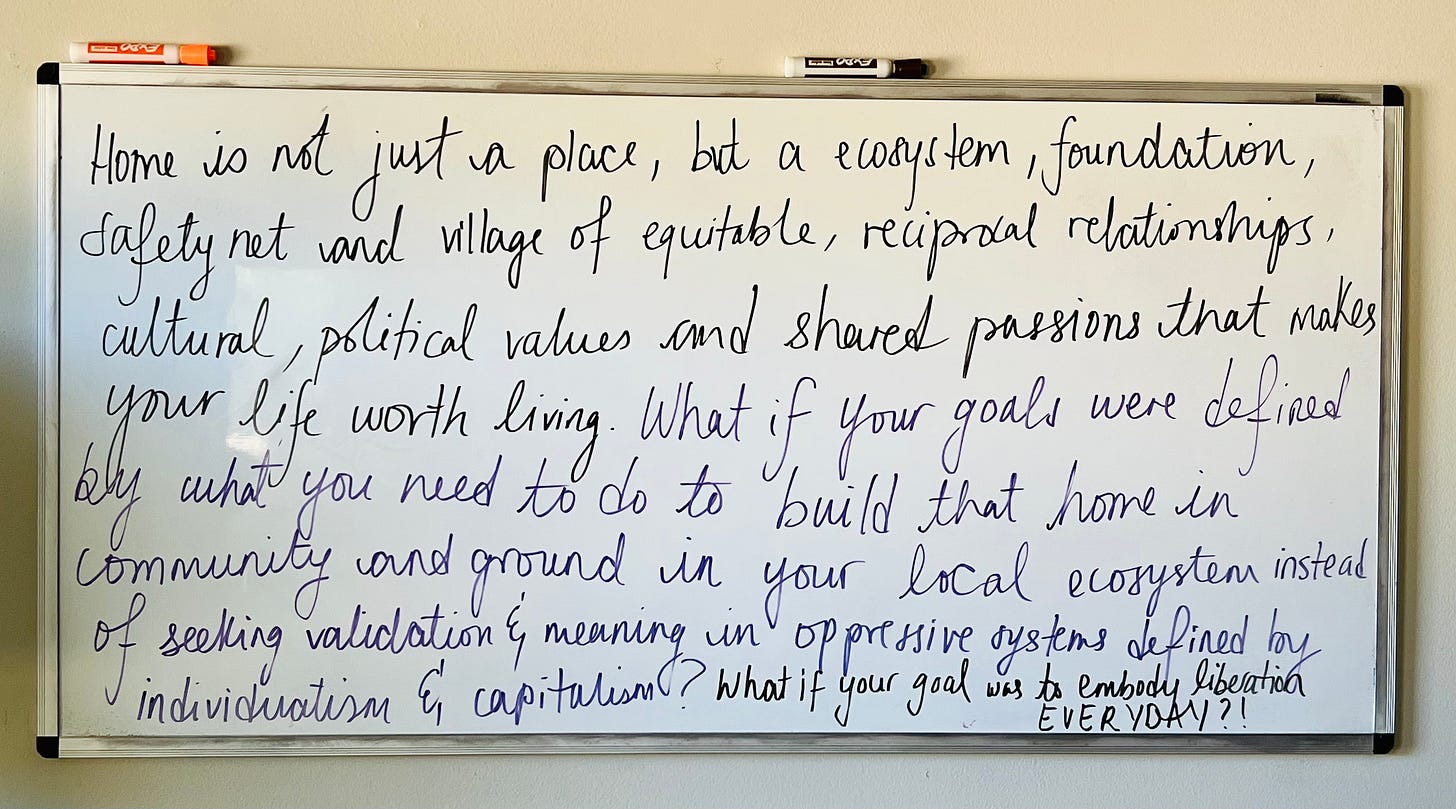 EXPO
EXPO
Home is not just a place, but a ecosystem, foundation,
safety net and village of equitable, reciprocal relationships,
cultural, political values and shared passions that makes
your life worth living. What if your goals were defined
by what you need to do to build that home in
community and ground in your local ecosystem instead
of seeking validation & meaning in oppressive systems defined by
individualism & capitalism? What if your goal was to embody liberation
EVERYDAY?!